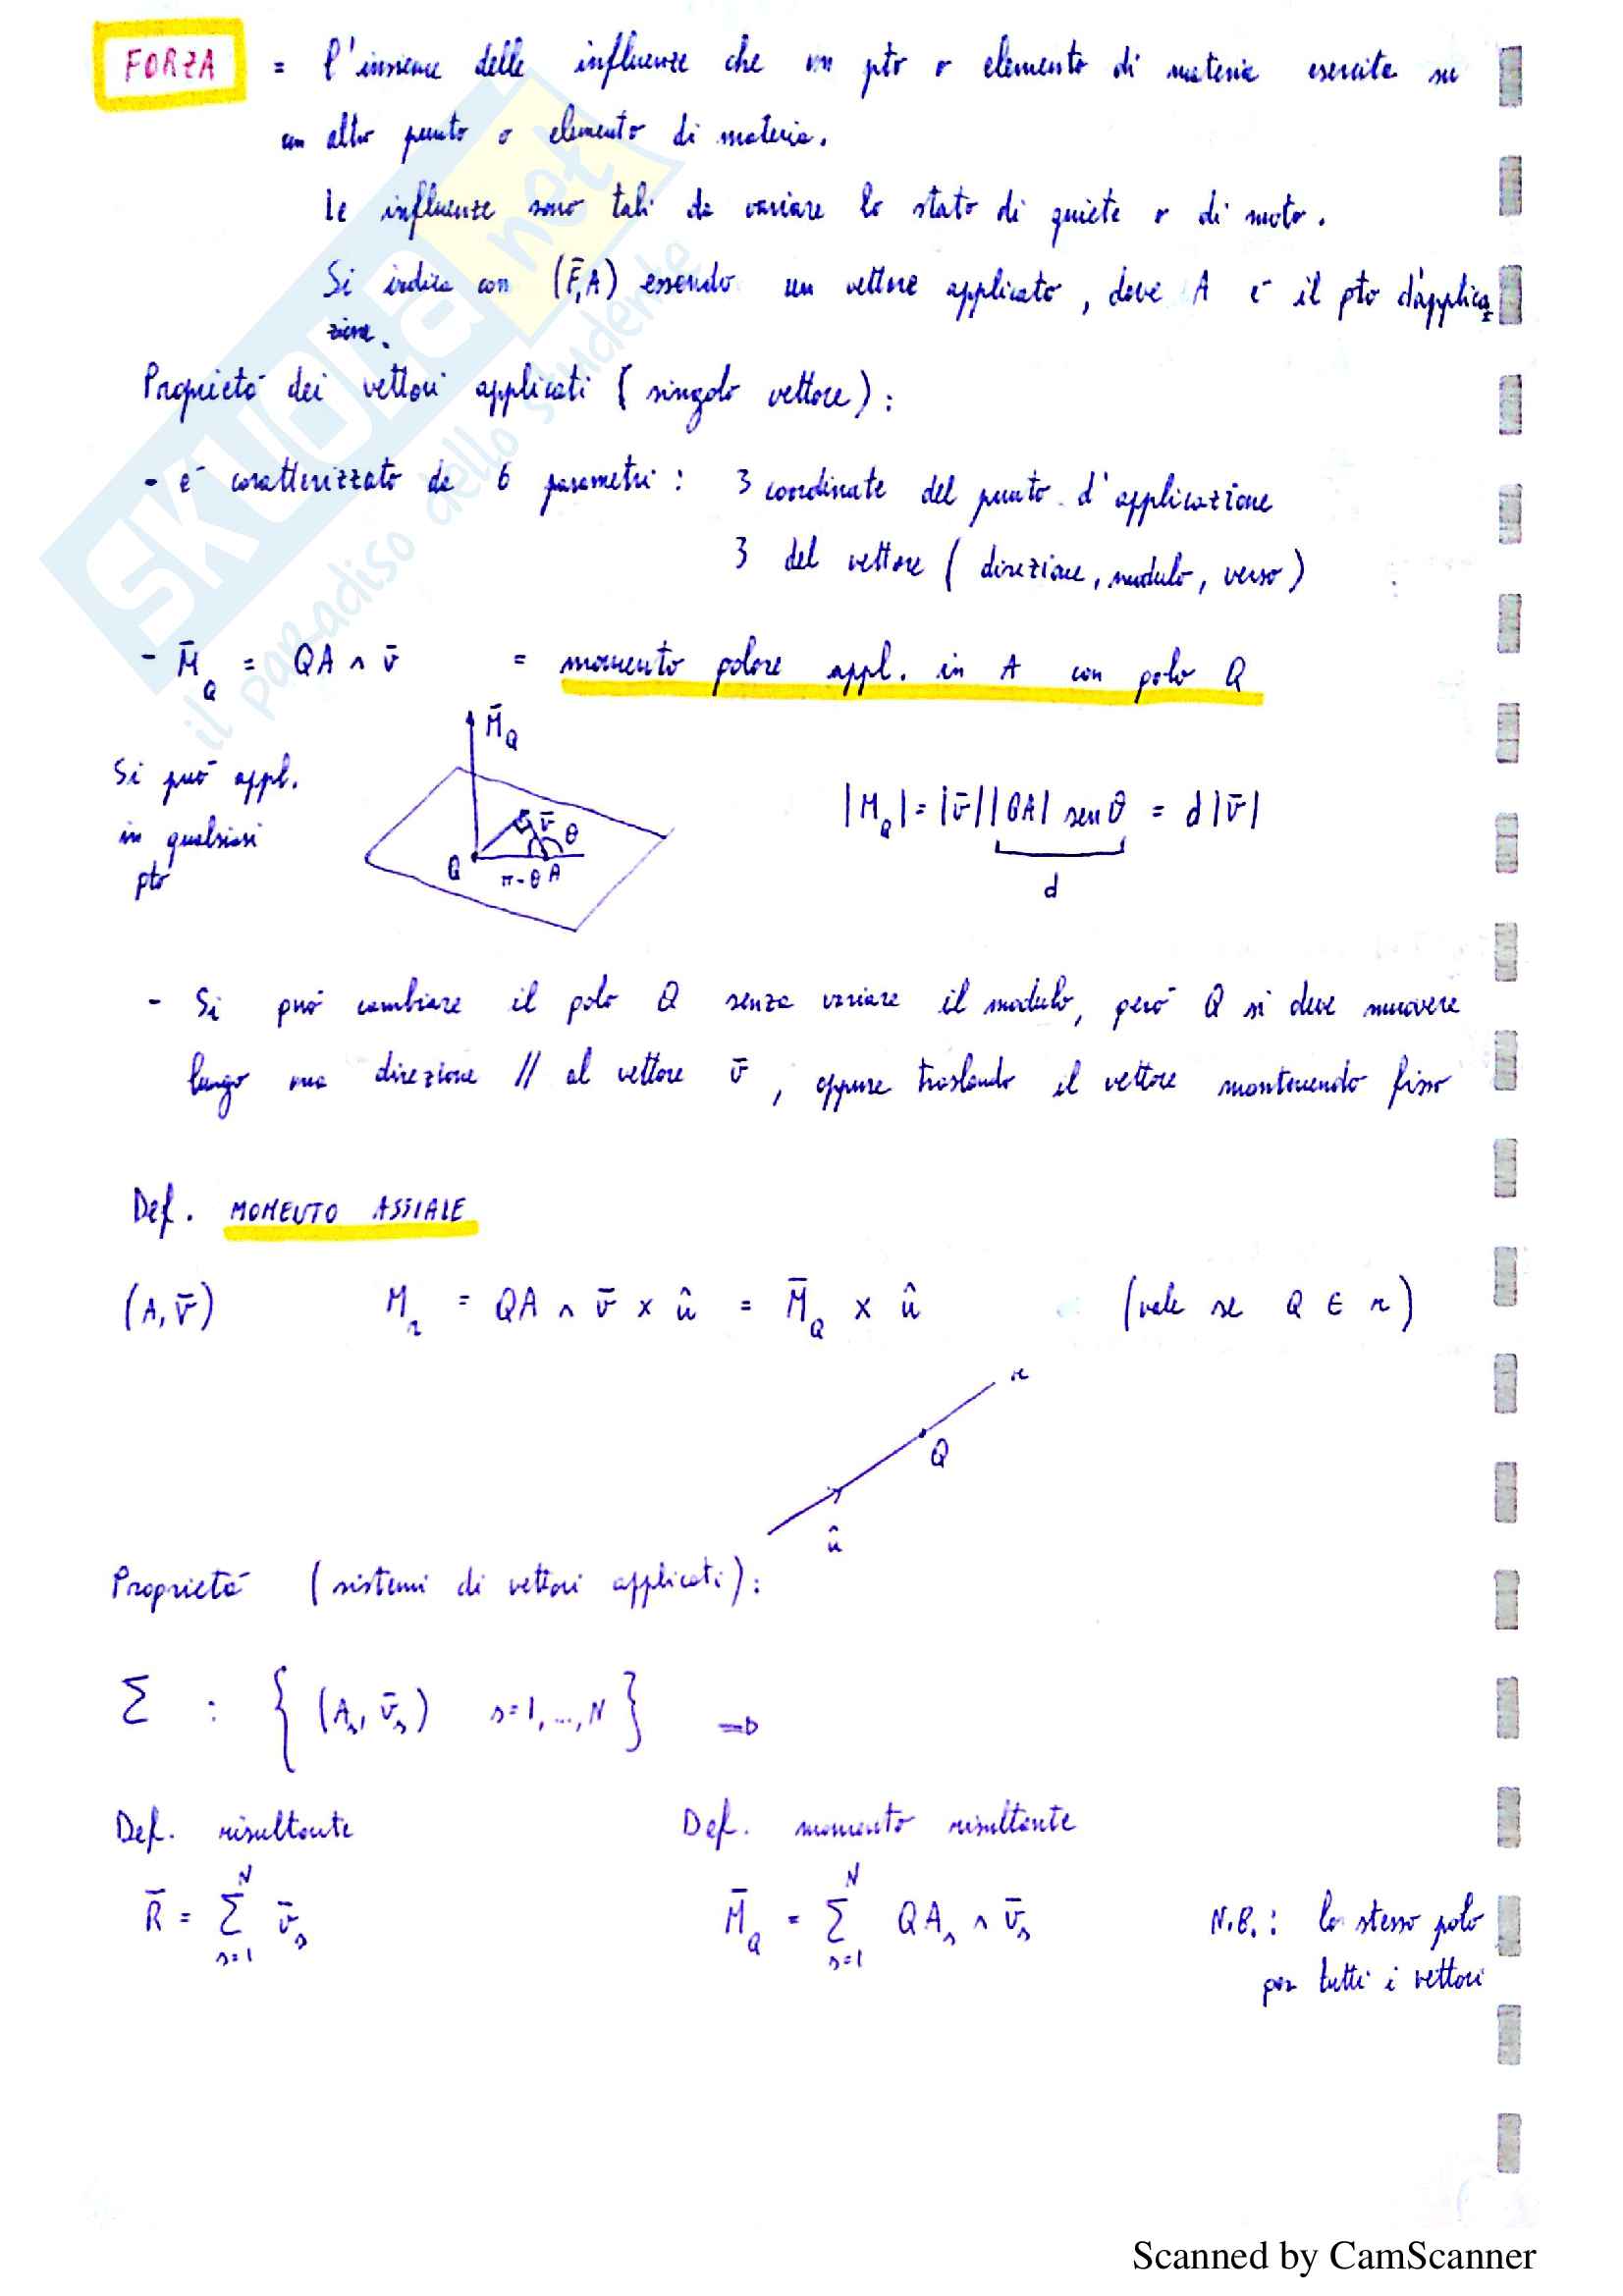 FORZA = l'insieme delle influenze che un pto o elemento di materia esercita su
un altro punto o elemento di materia.
Le influenze sono tali da variare lo stato di quiete o di moto.
Si indica con (F̄,A) essendo un vettore applicato, dove A è il pto d'applica
zione.
Proprietà dei vettori applicati (singolo vettore):
- è caratterizzato da 6 parametri: 3 coordinate del punto d'applicazione
3 del vettore (direzione, modulo, verso)
- M̄_Q = QA ∧ v̄ = momento polare appl. in A con polo Q
Si può appl.
in qualsiasi
pto
M̄_Q
v̄
θ
Q
π-θ A
|M_Q| = |v̄||QA| sen θ = d|v̄|
d
- Si può cambiare il polo Q senza variare il modulo, però Q si deve muovere
lungo una direzione // al vettore v̄, oppure traslando il vettore mantenendo fisso
Def. MOMENTO ASSIALE
(A,v̄) M_r = QA ∧ v̄ × û = M̄_Q × û (vale se Q ∈ r)
r
Q
û
Proprietà (sistemi di vettori applicati):
Σ : { (A_s, v̄_s) s=1,...,N } ⇒
Def. risultante Def. momento risultante
R̄ = Σ_{s=1}^{N} v̄_s M̄_Q = Σ_{s=1}^{N} QA_s ∧ v̄_s N.B.: lo stesso polo
per tutti i vettori
SKUOLA.net
il paradiso dello studente
Scanned by CamScanner